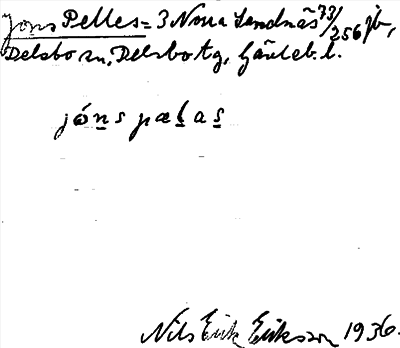 Jons Pelles = 3 Norra Sandnäs 33/256 jb,
Delsbo sn, Delsbo tg, Gävleb. l.
jóns pælas
Nils Erik Eriksson 1936.